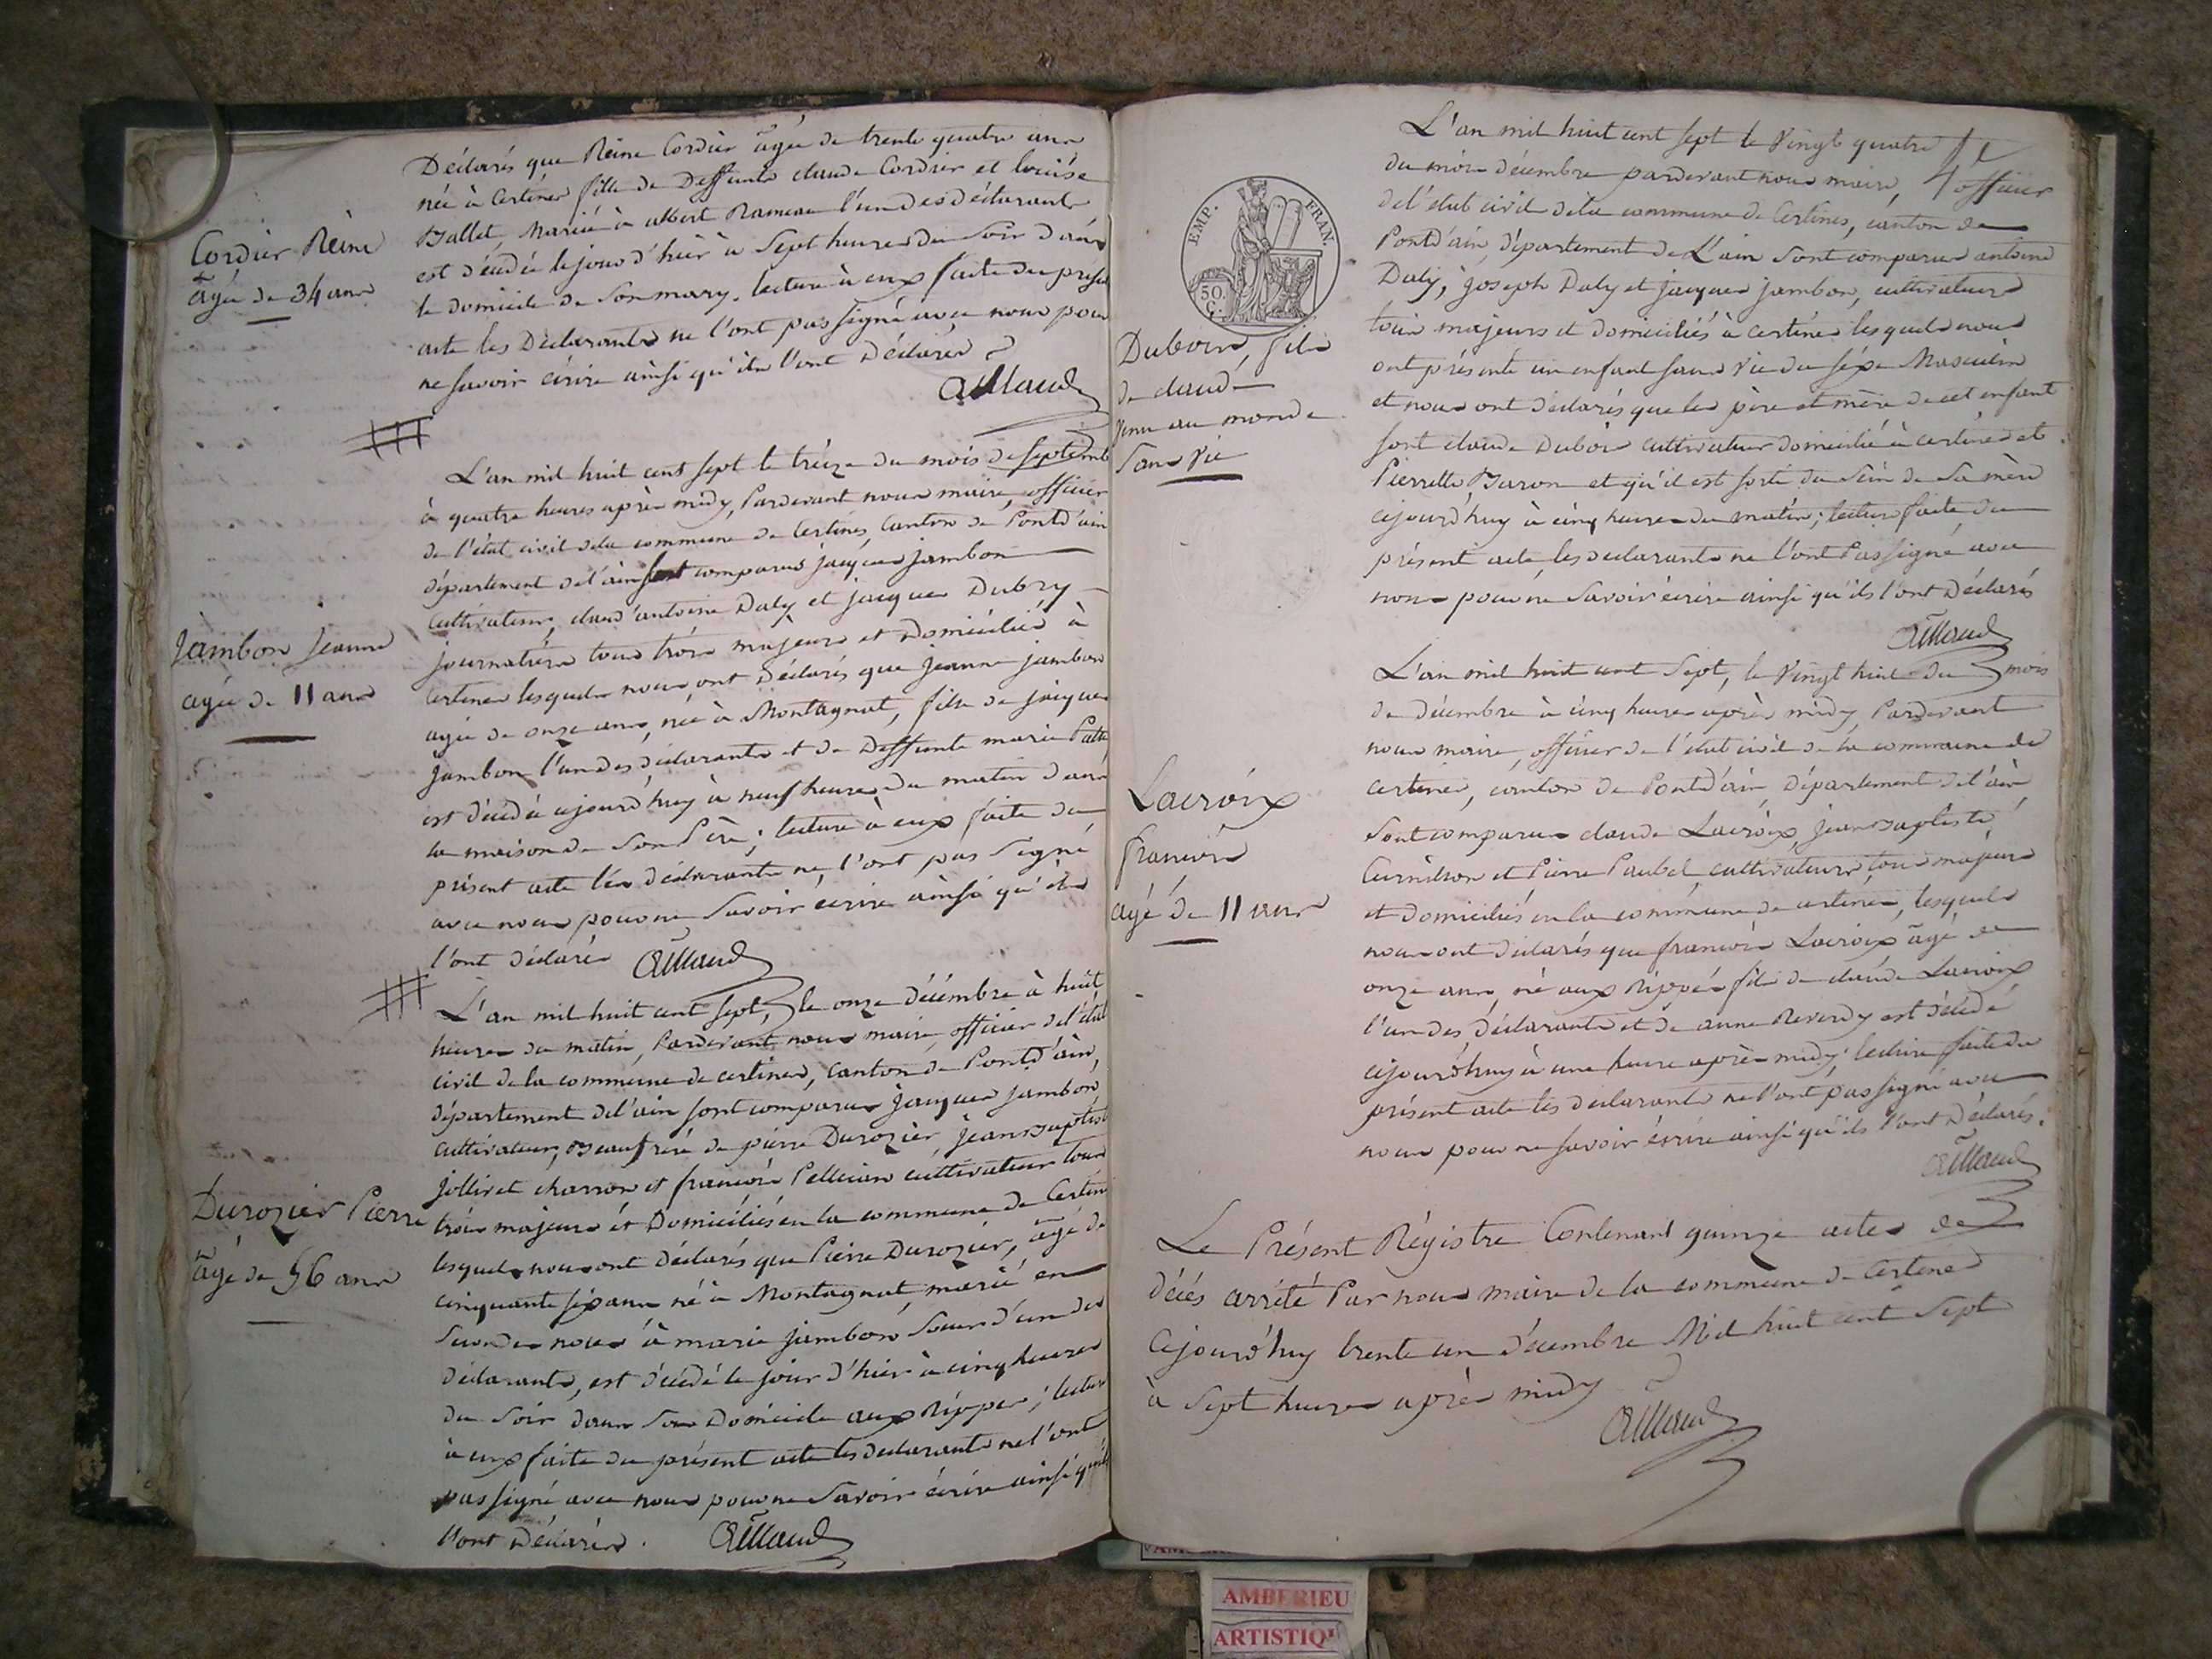 Cordier Reine
âgée de 34 ans
Déclarés que Reine Cordier âgée de trente quatre ans
née à Certines fille de Deffunts claude Cordier et louise
Ballet, Mariée à albert Rameau l'un des déclarants
est décédée le jour d'hièr à Sept heures du Soir dans
le domicile de Son mary. lecture à eux faite du présent
acte les Déclarants ne l'ont pas signé avec nous pour
ne savoir écrire ainsi qu'ils l'ont Déclarés
Aillaud
Jambon Jeanne
agée de 11 ans
L'an mil huit cent sept le treize du mois de septembre
à quatre heures après midy, Pardevant nous maire, officier
de l'état civil de la commune de Certines, Canton de Pontd'ain
département de l'ain sont comparus jacques jambon
cultivateur, claud'antoine Daly et jacques Dubry
journaliers tous trois majeurs et Domiciliés à
Certines lesquels nous ont Déclarés que jeanne jambon
agée de onze ans, née à Montagnat, fille de jacques
jambon l'un des déclarants et de Deffunte marie
est décédée cejourd'huy à neuf heures du matin dans
la maison de Son Père; lecture à eux faite du
présent acte les déclarants ne l'ont pas Signé
avec nous pour ne Savoir écrire ainsi qu'ils
l'ont déclarés Aillaud
Durozier Pierre
âgé de 56 ans
L'an mil huit cent sept, le onze décémbre à huit
heures du matin, Pardevant nous maire, officier de l'état
civil de la commune de certines, Canton de Pontd'ain,
département de l'ain sont comparus jacques jambon,
cultivateur, Beaufrère de pierre Durozier, jeanbaptiste
jollivet charron et françois Pellician cultivateur tous
trois majeurs et Domiciliés en la commune de Certines
lesquels nous ont déclarés que Pierre Durozier, âgé de
cinquante six ans né à Montagnat, marié en
Secondes noces à marie jambon Soeur d'un des
déclarants, est décédé le jour d'hier à cinq heures
du Soir dans Son Domicile aux Rippes; lecture
à eux faite du présent acte les declarants ne l'ont
pas signé avec nous pour ne Savoir écrire ainsi qu'ils
l'ont Déclarés. Aillaud
EMP. FRAN.
50.
C.
Dubois, fils
de claude
venu au monde
Sans vie
L'an mil huit cent sept le Vingt quatre
du mois décembre pardevant nous maire, officier
de l'état civil de la commune de Certines, canton de
Pontd'ain, département de L'ain Sont comparus antoine
Daly, joseph Daly et jacques jambon, cultivateurs
tous majeurs et domiciliés à certines lesquels nous
ont présenté un enfant sans vie du séxe Masculin
et nous ont déclarés que les père et mère de cet enfant
sont claude Dubois cultivateur domicilié à certines et
Pierrette Buron et qu'il est sorti du Sein de Sa mère
cejourd'huy à cinq heures du matin; lecture faite du
présent acte, les declarants ne l'ont Pas signé avec
nous pour ne Savoir écrire ainsi qu'ils l'ont Déclarés
Aillaud
Lacroix
françois
agé de 11 ans
L'an mil huit cent Sept, le Vingt huit du mois
de décembre à cinq heures après midy, Pardevant
nous maire, officier de l'état civil de la commune de
certines, canton de Pontd'ain, département de l'ain
Sont comparus claude Lacroix, jeanbaptiste
et Pierre Paubel, cultivateurs, tous majeurs
et domiciliés en la commune de certines, lesquels
nous ont declarés que françois Lacroix âgé de
onze ans, né aux Rippes fils de claude Lacroix
l'un des déclarants et de anne Reverdy est décédé
cejourd'huy à une heure après midy; lecture faite du
présent acte les declarants ne l'ont pas signé avec
nous pour ne savoir écrire ainsi qu'ils l'ont Déclarés.
Aillaud
Le Présent Régistre Contenant quinze actes de
décés arrété Par nous maire de la commune de Certines
Cejourd'huy trente un décembre Mil huit cent Sept
à Sept heures après midy
Aillaud
AMBERIEU
ARTISTIQU